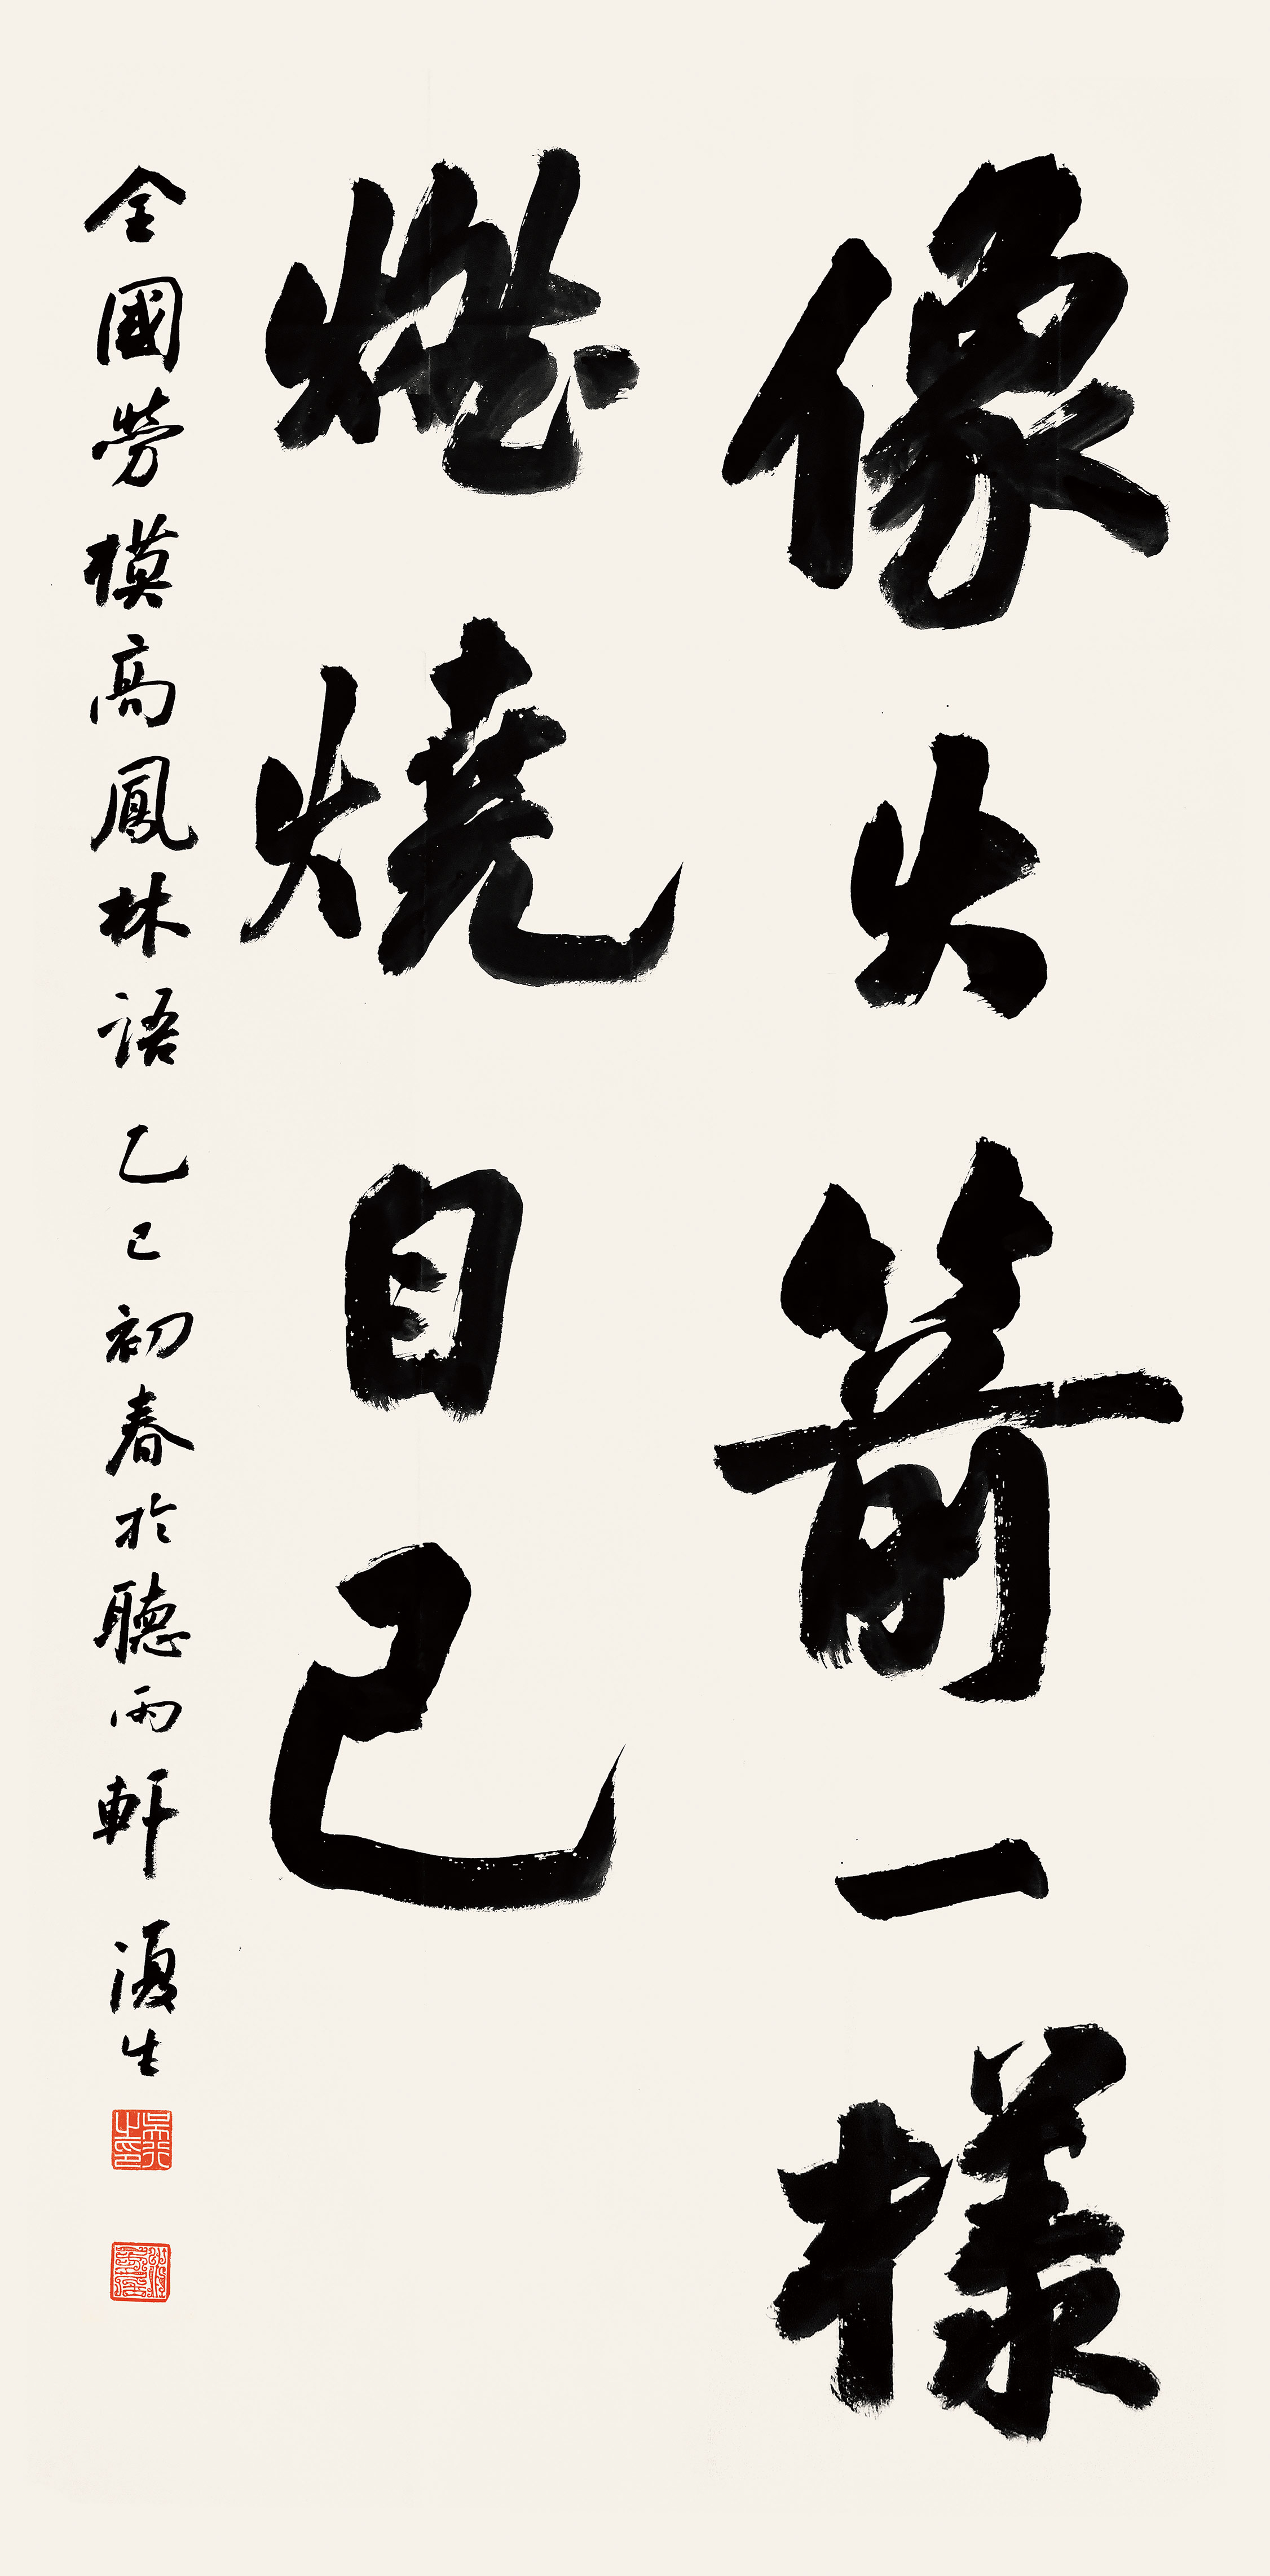 像火箭一樣
燃燒自己
全國勞模高鳳林語 乙巳初春於聽雨軒 復生
吳行之印